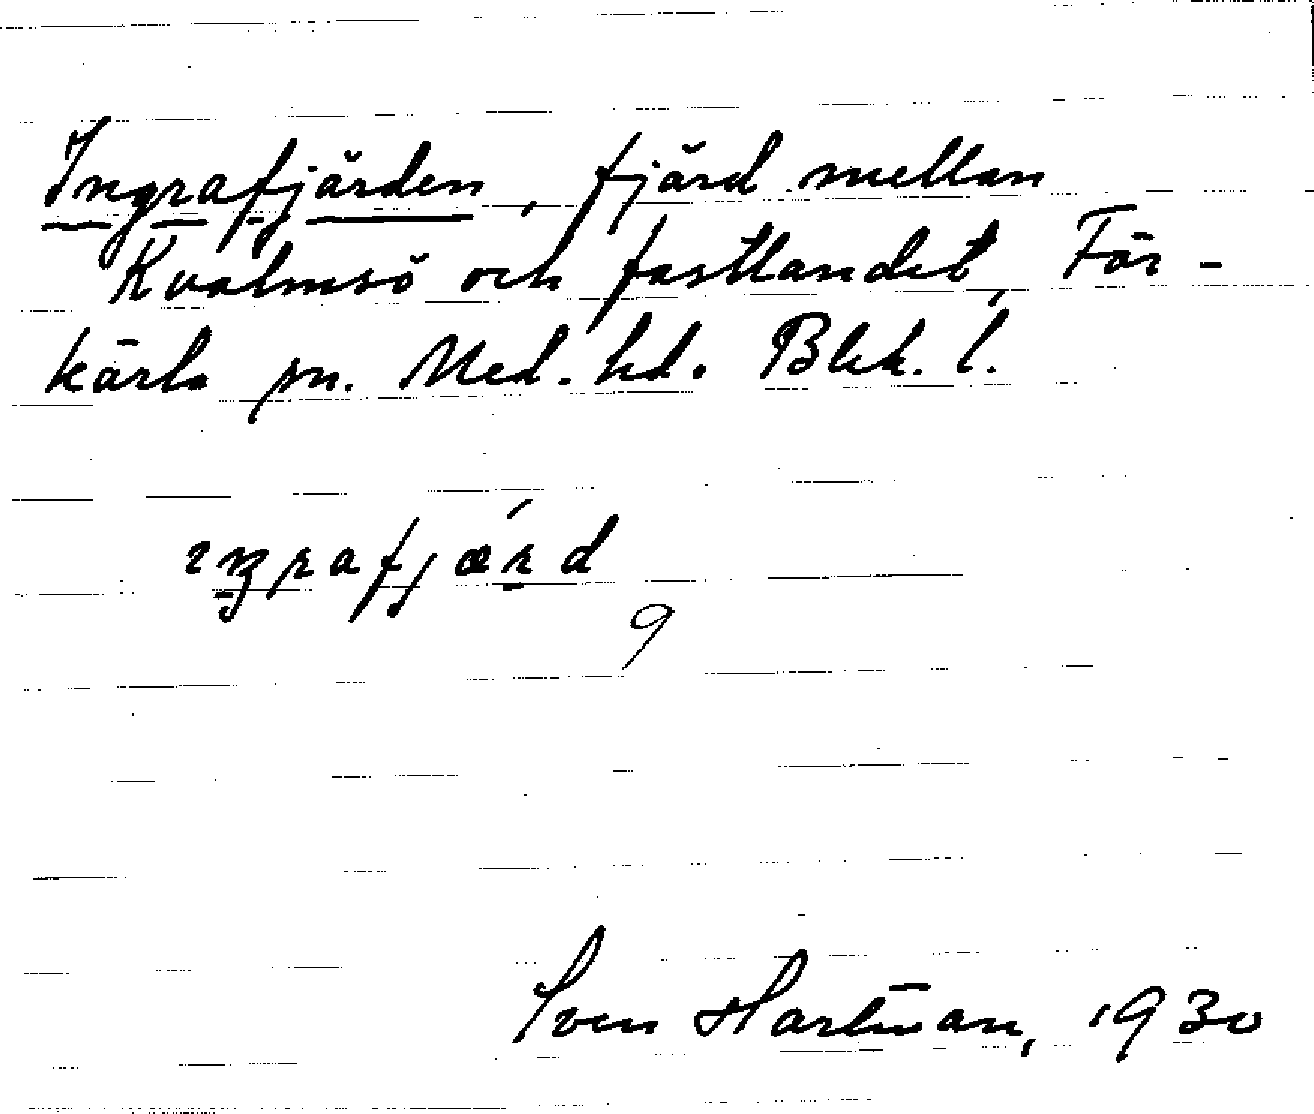 Ingrafjärden, fjärd mellan
Kvalmsö och fastlandet, För-
kärla sn. Med. hd. Blek. l.
ɩŋrafjǽrd
9
Sven Hartman, 1930